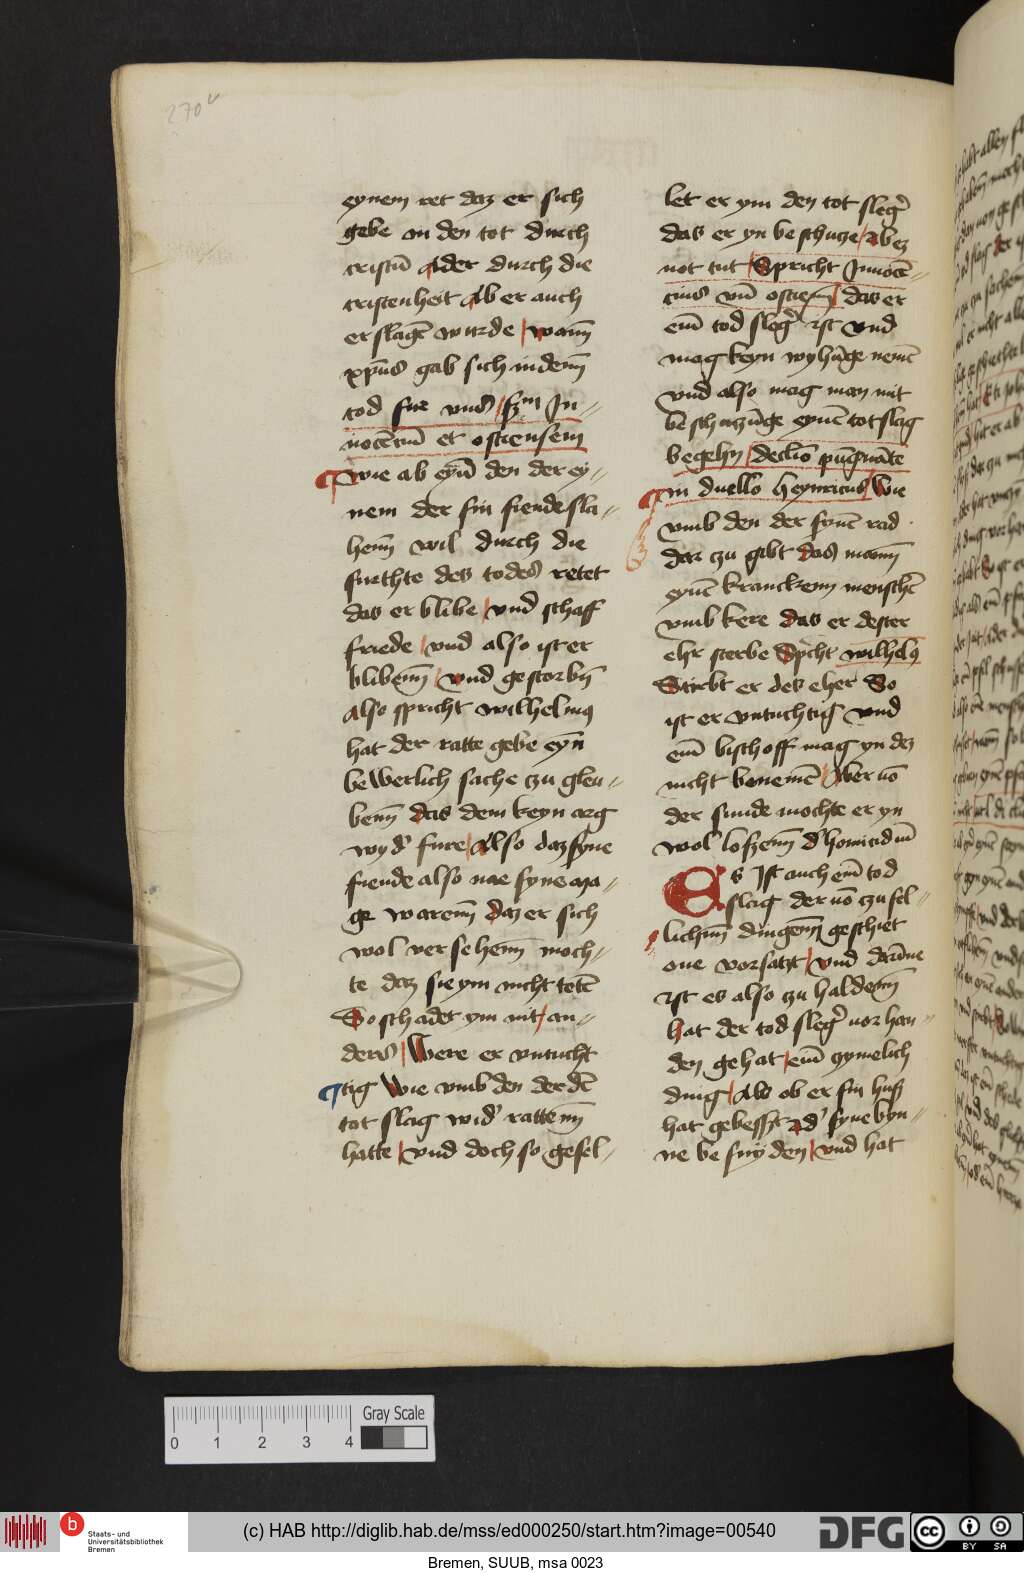 270v
eynem ret daz er sich
gebe in den tot durch
cristū ader durch die
cristenheit Ab er auch
er slagē wurde / wann̄
xp̄us gab sich in denn̄
tod fur vns / scd̄m In-
nocēciū et ostiensem
wie ab eyū den der ey-
nem der sin fiende sla-
henn̄ wil durch die
furchte des todes retet
das er blibe / vnd schaff
friede / vnd also ist er
blibenn̄ / vnd gestorbn̄
Also spricht wilhelmus
hat der ratte gebe eyn̄
bewerlich sache czu gleu-
benn̄ das dem keyn arg
wyd' fure / Also daz syne
fiende also nae syne ma-
ge warenn̄ daz er sich
wol versehenn̄ moch-
te daz sie ym nicht tetē
So schadet ym nit / an-
ders / Were er vntucht
tig Wie vmb den der dē
tot slag wid' rattenn̄
hatte / vnd doch so gefel-
let er ym den tot sleg'
das er yn beschucze / Abez
not tut / Spricht Innocē-
cius vn̄ ostien̄ / das er
ein̄ tod sleg' ist vnd
mag keyn wyhūge nemē
vnd also mag man mit
beschuczūge eynē totslag
begehn / de clīo pūgnāte
in duello heynricus / Wie
vmb den der synē rad
dar czu gibt das mann̄
eynē kranckenn menschē
vmb kere das er dester
ehr sterbe Sp'cht wilhel9
Stirbt er des eher So
ist er vntuchtig vnd
ein̄ bischoff mag yn dez
nicht benemē / Aber vō
der sunde mochte er yn
wol loszenn̄ d' homicidiū
Es Ist auch ein̄ tod
slag der vō czufel-
lichnn̄ dingenn̄ geschiet
one vorsatzt / vnd darīne
ist es also czu haldenn̄
hat der tod sleg' vor han-
den gehat / ein̄ czymelich
ding / Als ob er sin husz
hat gebesszt ad' syne byn-
ne besnyden / vnd hat
0 1 2 3 4
Gray Scale
b
Staats- und
Universitätsbibliothek
Bremen
(c) HAB http://diglib.hab.de/mss/ed000250/start.htm?image=00540
DFG
cc
BY SA
Bremen, SUUB, msa 0023